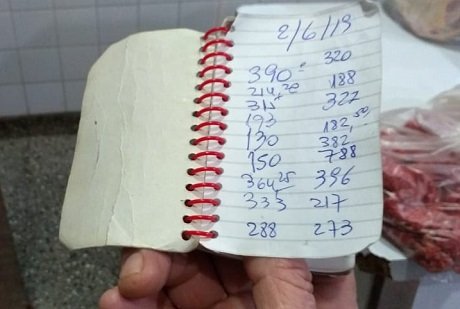 2/6/19
320
390
214,20 188
315 322
193
130 182,50
150 382
788
364,25 396
333 217
288 273